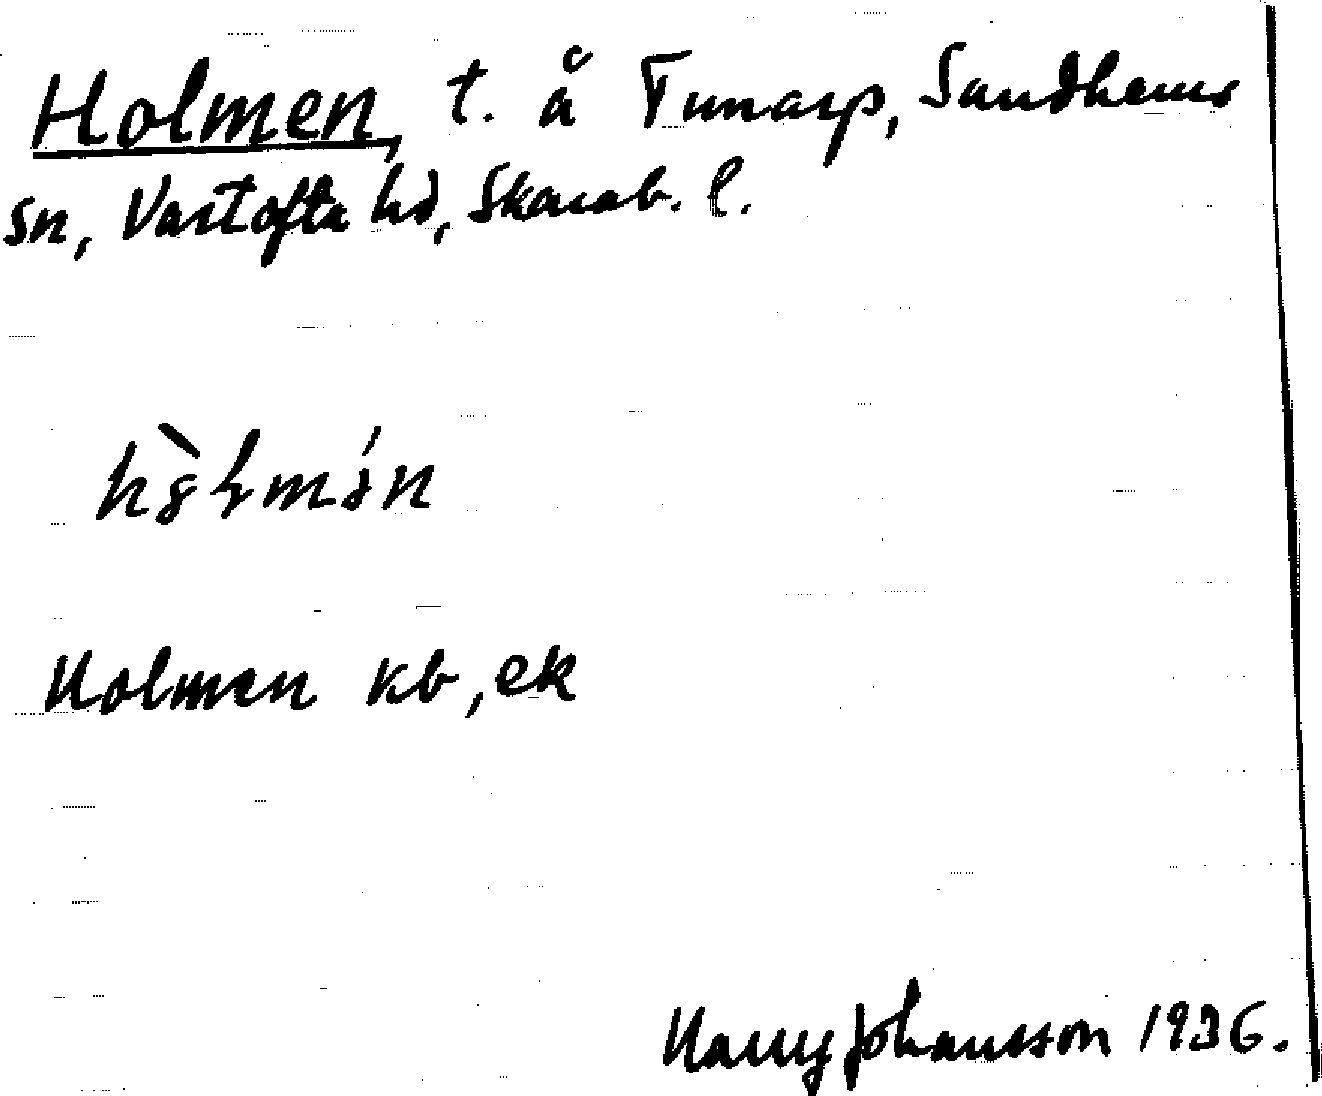 Holmen, t. å Tunarp, Sandhems
sn, Vartofta hd, Skarab. l.
Holmen kb, ek
Harry Johansson 1936.